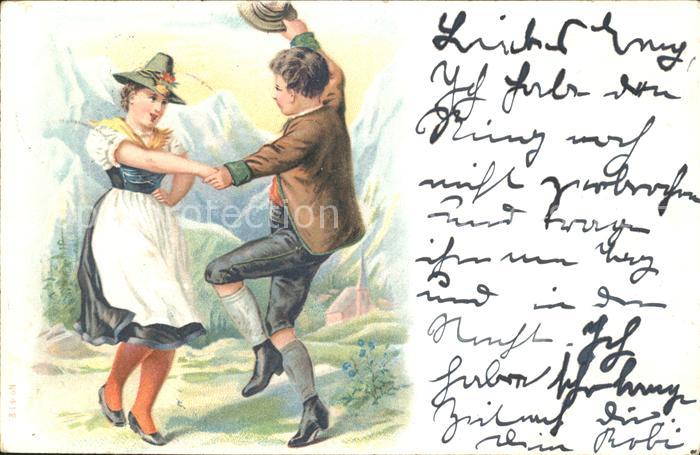 Liebes
Ich habe den
Ring noch
nicht zerbrochen
und trage
ihn am Tag
und in der
Nacht. Ich
habe sehr lange
Zeit nach dir.
Dein Robi
No 412